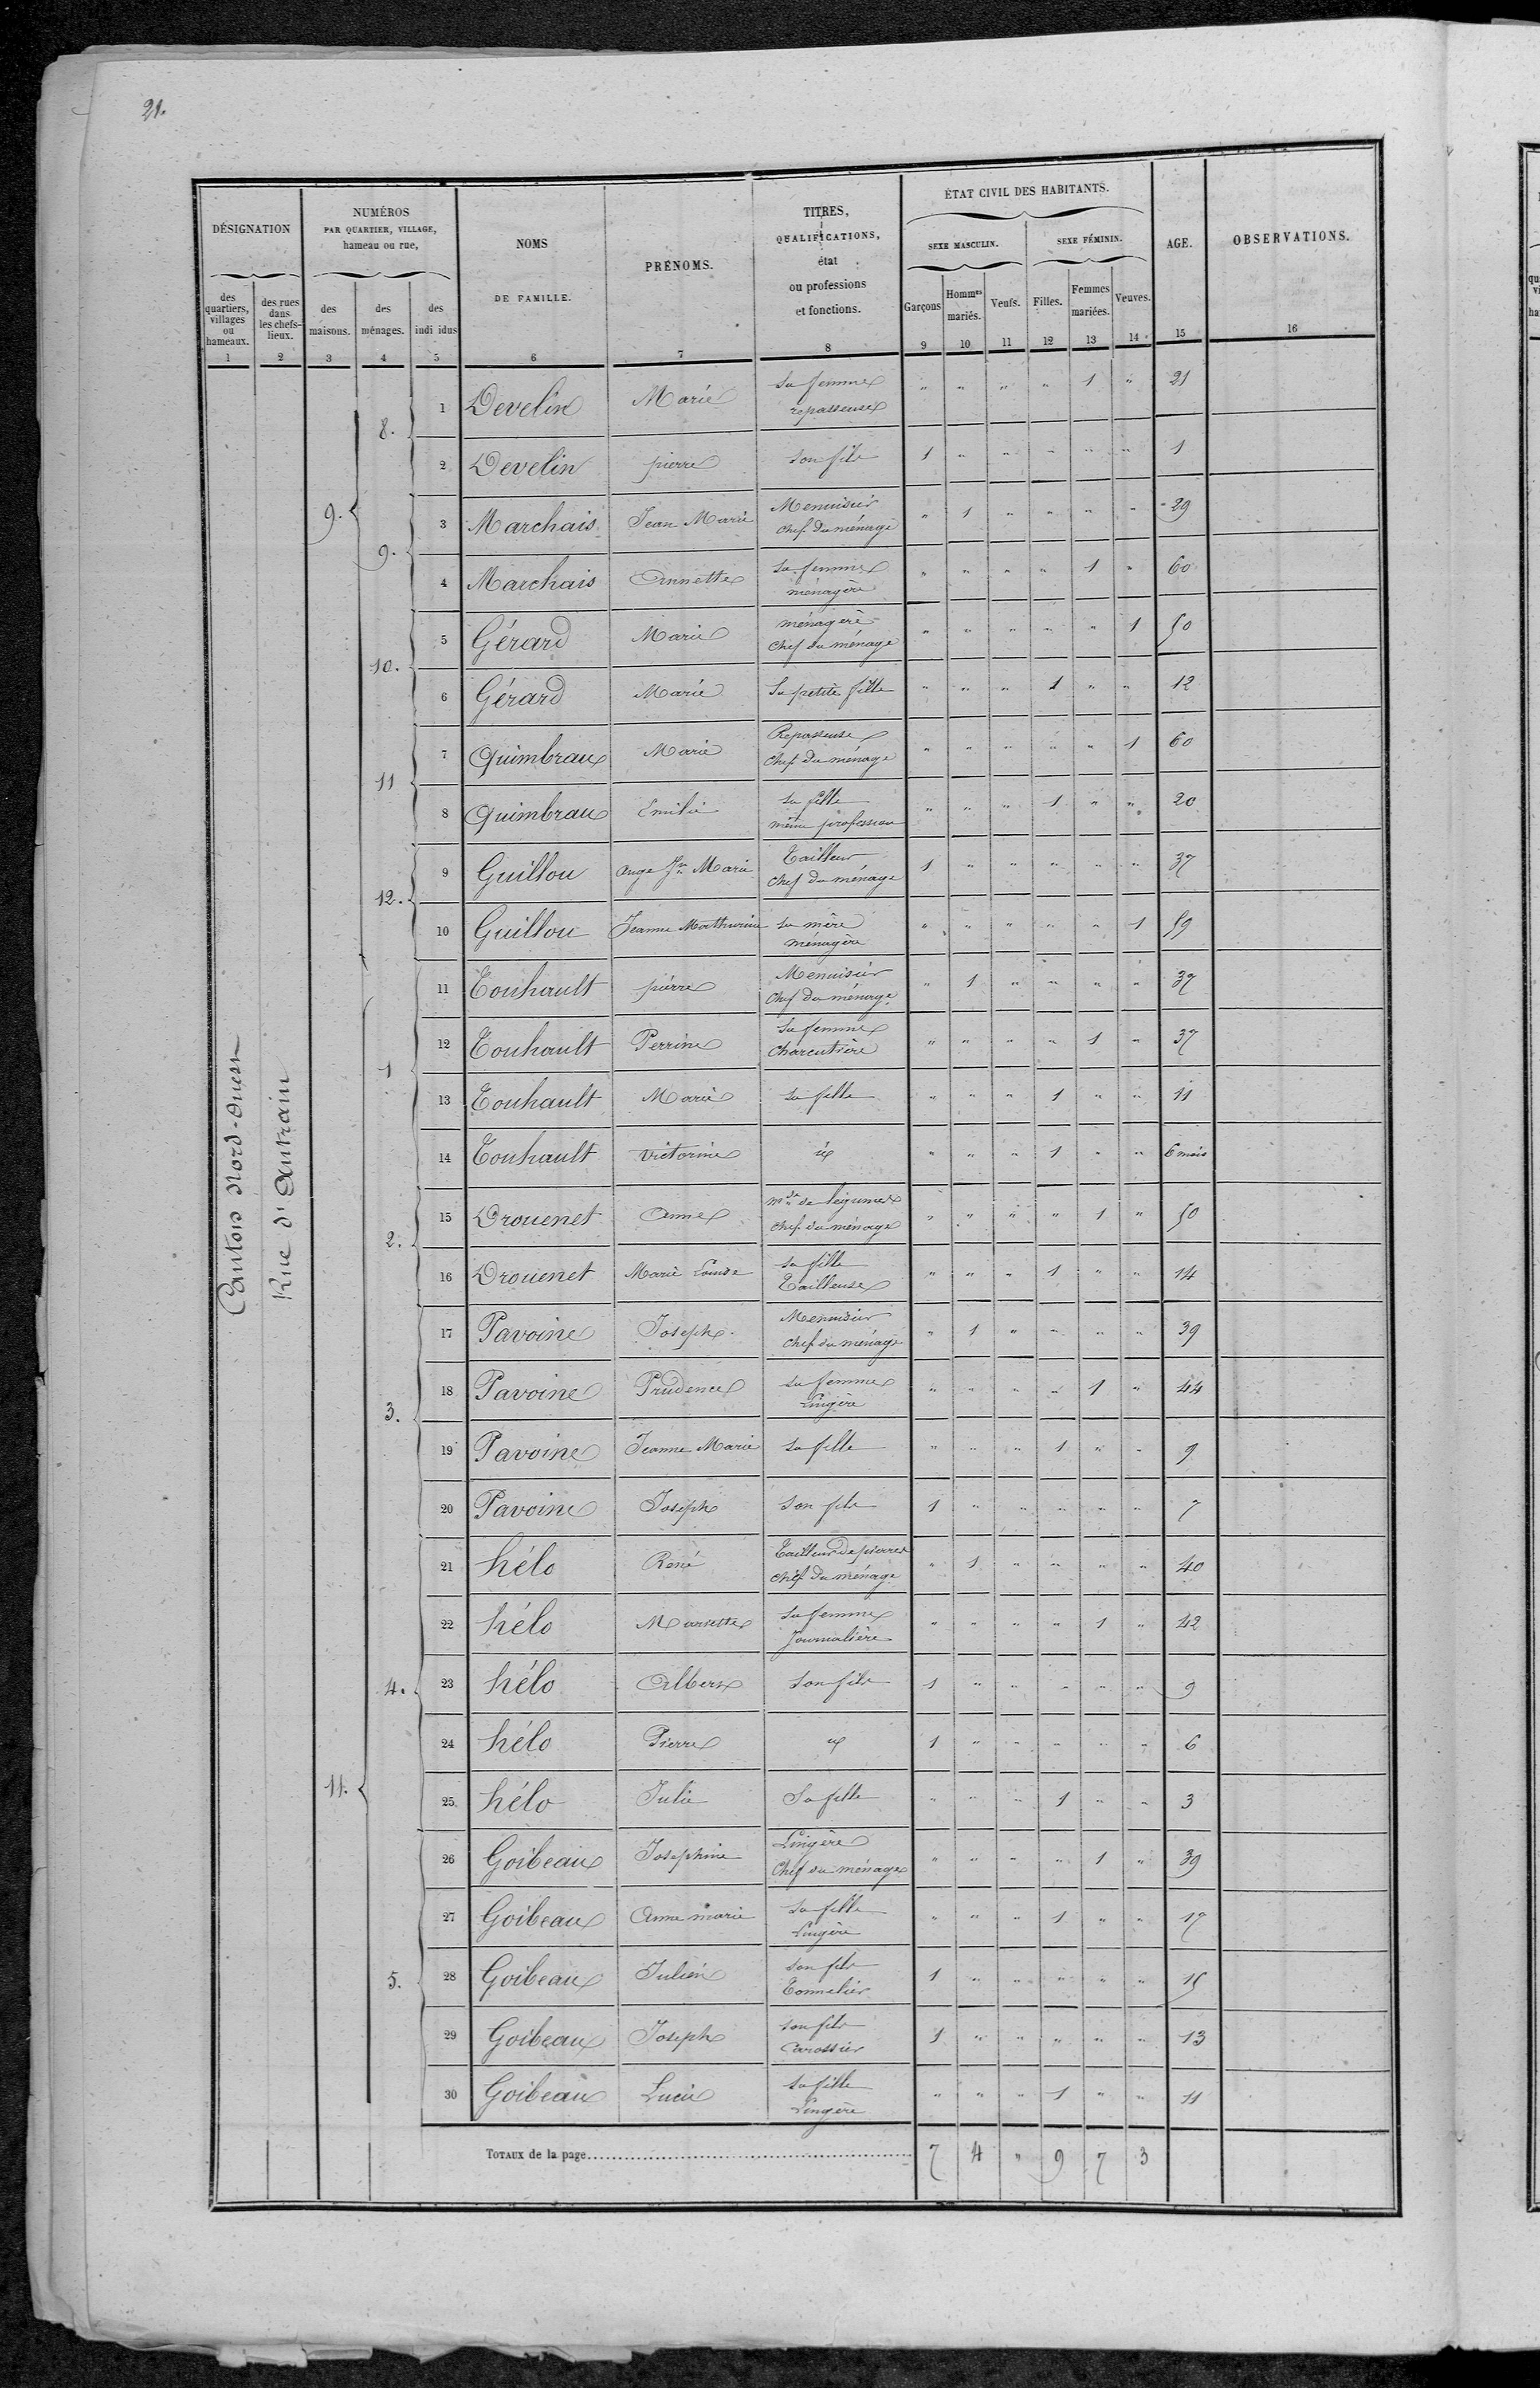 21.
DÉSIGNATION
NUMÉROS
PAR QUARTIER, VILLAGE,
hameau ou rue,
NOMS
DE FAMILLE.
PRÉNOMS.
TITRES,
QUALIFICATIONS,
état
ou professions
et fonctions.
ÉTAT CIVIL DES HABITANTS.
SEXE MASCULIN.
SEXE FÉMININ.
AGE.
OBSERVATIONS.
des quartiers, villages ou hameaux.
des rues dans les chefs-lieux.
des maisons.
des ménages.
des indi idus
Garçons
Hommes mariés.
Veufs.
Filles.
Femmes mariées.
Veuves.
1 2 3 4 5 6 7 8 9 10 11 12 13 14 15 16
Canton Nord-Ouest
Rue d'Antrain
9.
8.
1 Develin Marie sa femme repasseuse " " " " 1 " 21
2 Develin pierre son fils 1 " " " " " 1
9.
3 Marchais Jean Marie Menuisier chef du ménage " 1 " " " " 29
4 Marchais Annette sa femme ménagère " " " " 1 " 60
10.
5 Gérard Marie ménagère chef du ménage " " " " " 1 50
6 Gérard Marie Sa petite fille " " " 1 " " 12
11
7 Quimbraux Marie Repasseuse chef du ménage " " " " " 1 60
8 Quimbraux Emilie sa fille même profession " " " 1 " " 20
12.
9 Guillou Ange Jn Marie Tailleur chef du ménage 1 " " " " " 37
10 Guillou Jeanne Mathurine sa mère ménagère " " " " " 1 59
11.
1
11 Touhault pierre Menuisier chef du ménage " 1 " " " " 37
12 Touhault Perrine sa femme Charcutière " " " " 1 " 37
13 Touhault Marie sa fille " " " 1 " " 11
14 Touhault victorine " " " 1 " " 6 mois
2.
15 Drouenet Anne mde de légumes chef du ménage " " " " 1 " 50
16 Drouenet Marie Louise sa fille Tailleuse " " " 1 " " 14
3.
17 Pavoine Joseph Menuisier chef du ménage " 1 " " " " 39
18 Pavoine Prudence sa femme Lingère " " " " 1 " 44
19 Pavoine Jeanne Marie sa fille " " " 1 " " 9
20 Pavoine Joseph son fils 1 " " " " " 7
4.
21 hélo René Tailleur de pierres chef du ménage " 1 " " " " 40
22 hélo sa femme Journalière " " " " 1 " 42
23 hélo Albert son fils 1 " " " " " 9
24 hélo Pierre 1 " " " " " 6
25 hélo Julie Sa fille " " " 1 " " 3
5.
26 Goibeaux Josephine Lingère Chef du ménage " " " " 1 " 39
27 Goibeaux Anne marie sa fille Lingère " " " 1 " " 17
28 Goibeaux Julien son fils Tonnelier 1 " " " " " 15
29 Goibeaux Joseph son fils Carossier 1 " " " " " 13
30 Goibeaux Lucie sa fille Lingère " " " 1 " " 11
TOTAUX de la page 7 4 " 9 7 3